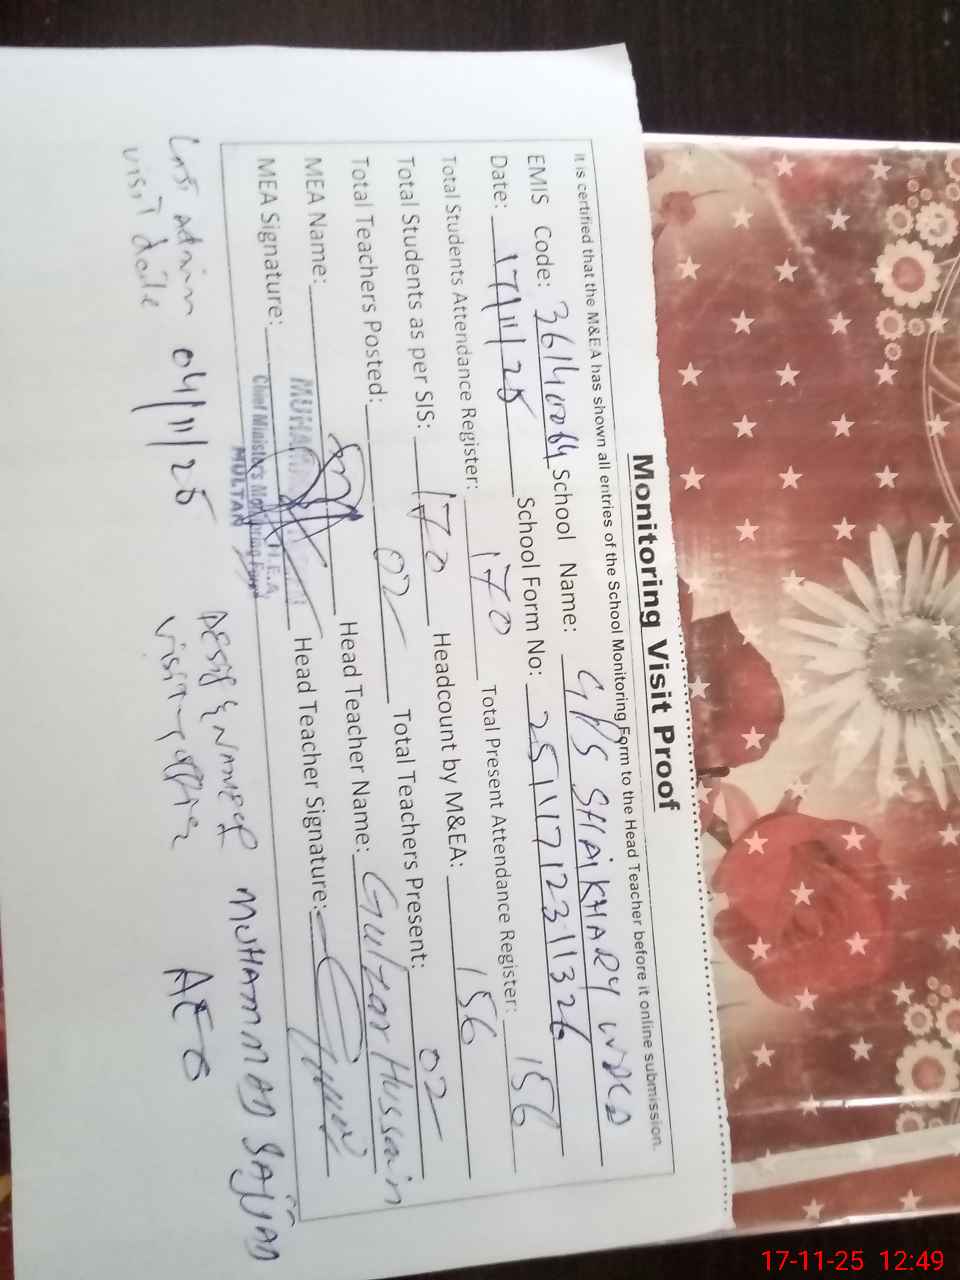 Monitoring Visit Proof
It is certified that the M&EA has shown all entries of the School Monitoring Form to the Head Teacher before it online submission.
EMIS Code: 36140064 School Name: GPS SHAIKHARY WALA
Date: 17/11/25 School Form No: 25111712311326
Total Students Attendance Register: 170 Total Present Attendance Register: 156
Total Students as per SIS: 170 Headcount by M&EA: 156
Total Teachers Posted: 02 Total Teachers Present: 02
MEA Name: Head Teacher Name: Gulzar Hussain
MEA Signature: Head Teacher Signature:
Chief Minister's Monitoring Force
MULTAN
Last admin 04/11/25 visit date
Desig & Name of visiting officer MUHAMMAD SAJJAD AEO
17-11-25 12:49